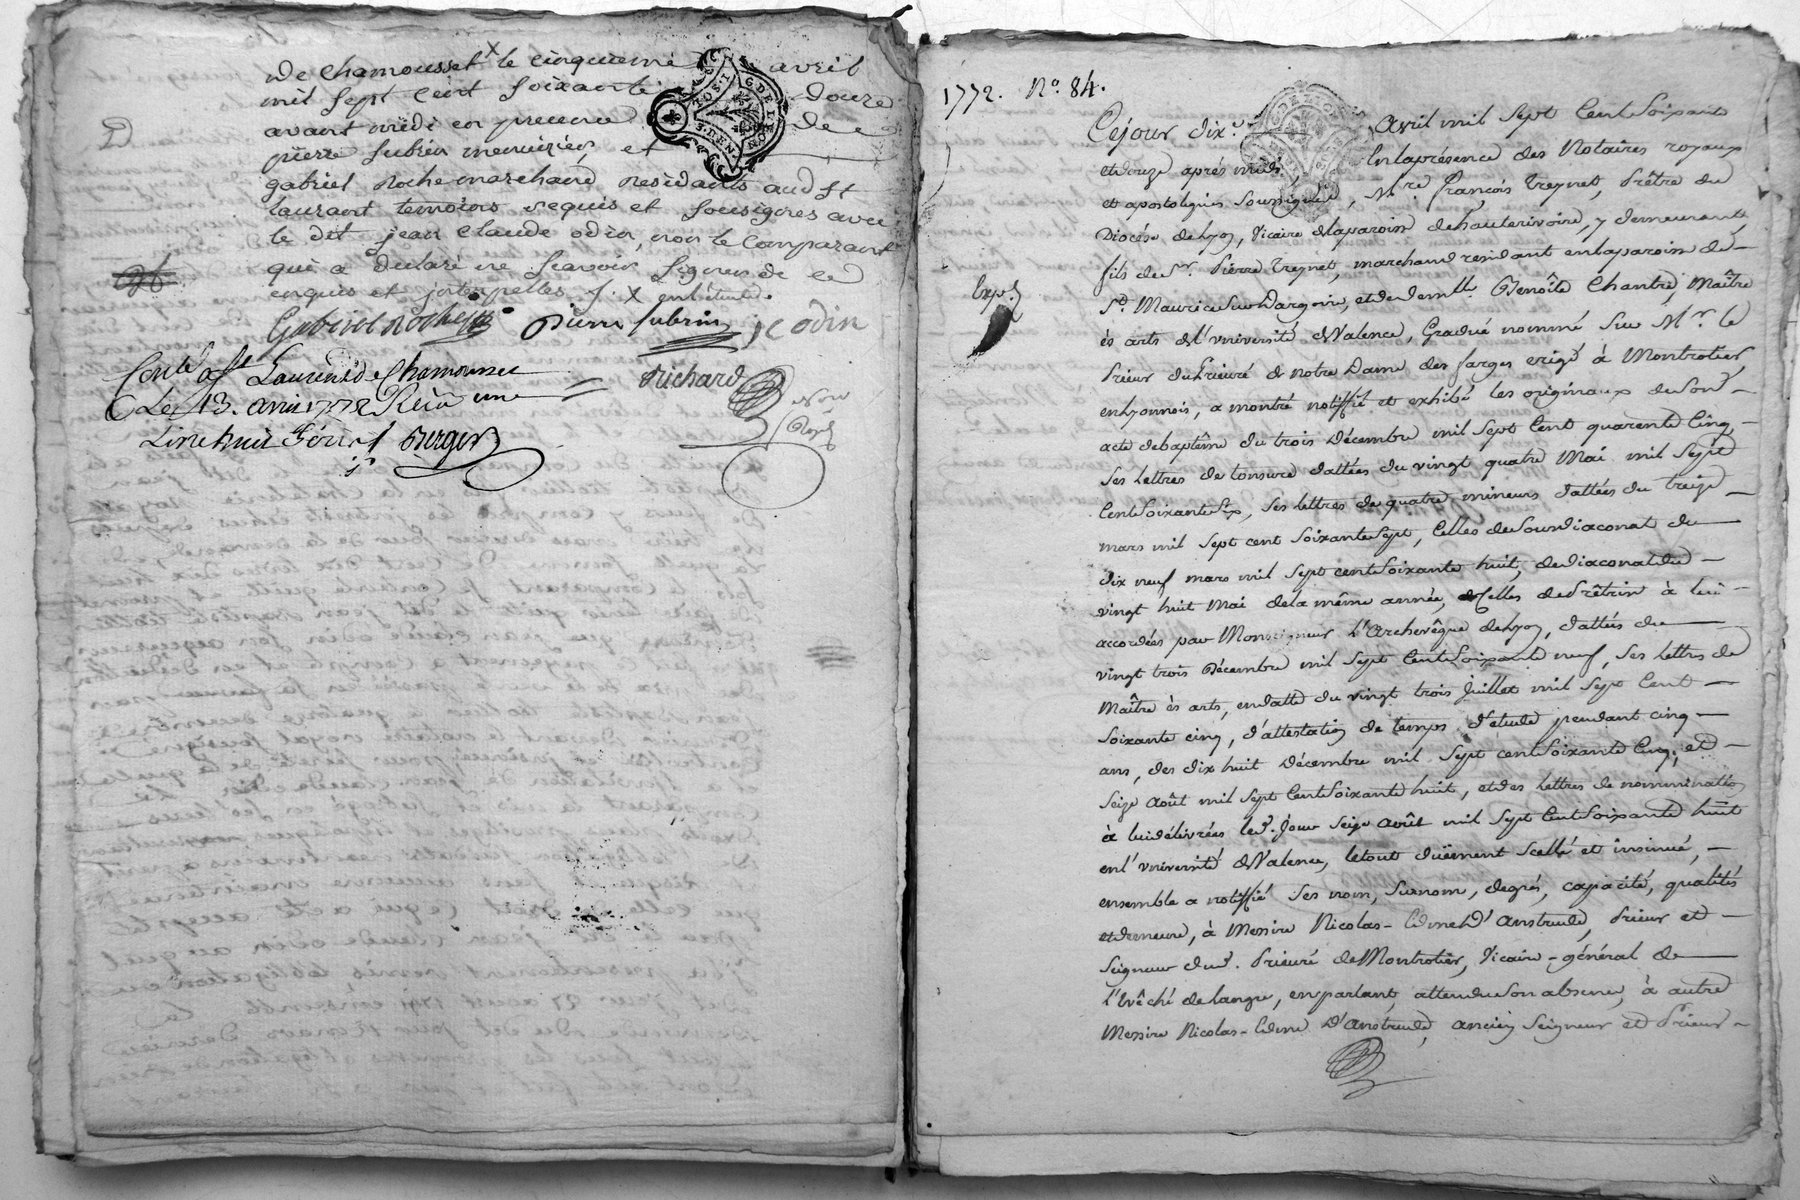 de chamousset X le cinquieme avril
mil sept cent soixante douze
avant midi en presence de
pierre subrin menuizier et
gabriel roche marchand residants aud st
laurant temoins requis et sousignes avec
le dit jean claude odin, non le comparant
qui a declaré ne scavoir signer de ce
enquis et interpelles ./. X
Gabriel Roche Pierre Subrin JC odin
Conlé a St Laurent de Chamousset
Le 13. avril 1772 Reçu une
Livre huit sous Berger
Richard
Exp.
1772. No. 84.
Cejour dix avril mil sept Cent soixante
et douze aprés midi, En la présence des Notaires royaux
et apostoliques soussignés, Mre. François Treynet, Prêtre du
Diocése de Lyon, Vicaire de la paroisse de hauterivoire, y demeurant,
fils de Sr. Pierre Treynet, marchand residant en la paroisse de
St. Maurice sur Dargoire, et de demlle. Benoîte Chantre, Maître
és arts de l'université de Valence, Gradué nommé sur Mr. le
Prieur du Prieuré de notre Dame des farges erigé à Montrotier
en Lyonnois, a montré notiffié et exhibé les originaux de son
acte de baptême du trois Décembre mil sept Cent quarente Cinq,
ses lettres de tonsure dattées du vingt quatre Mai mil sept
Cent soixante six, ses lettres de quatre mineurs dattées du treize
mars mil sept cent soixante sept, Celles de sousdiaconat du
dix neuf mars mil sept cent soixante huit, de diaconat du
vingt huit Mai de la même année, et Celles de Prêtrise à lui
accordées par Monseigneur l'Archevêque de Lyon, dattées du
vingt trois Décembre mil sept Cent soixante neuf, ses lettres de
Maître ès arts, en datte du vingt trois juillet mil sept Cent
soixante cinq, d'attestation de temps d'étude pendant cinq
ans, des dix huit Décembre mil sept cent soixante Cinq, et
seize Août mil sept Cent soixante huit, et des lettres de nomminatton
à lui délivrées led. jour seize Août mil sept Cent soixante huit
en l'université de Valence, le tout duëment scellé et insinué,
ensemble a notiffié ses nom, surnom, degrés, capacité, qualités
et demeure, à Messire Nicolas-Edme D'Anstrude, Prieur et
Seigneur dud. Prieuré de Montrotier, Vicaire-général de
l'Evêché de Langre, en parlant, attendu son absence, à autre
Messire Nicolas-Edme D'Anstrude, ancien Seigneur et Prieur